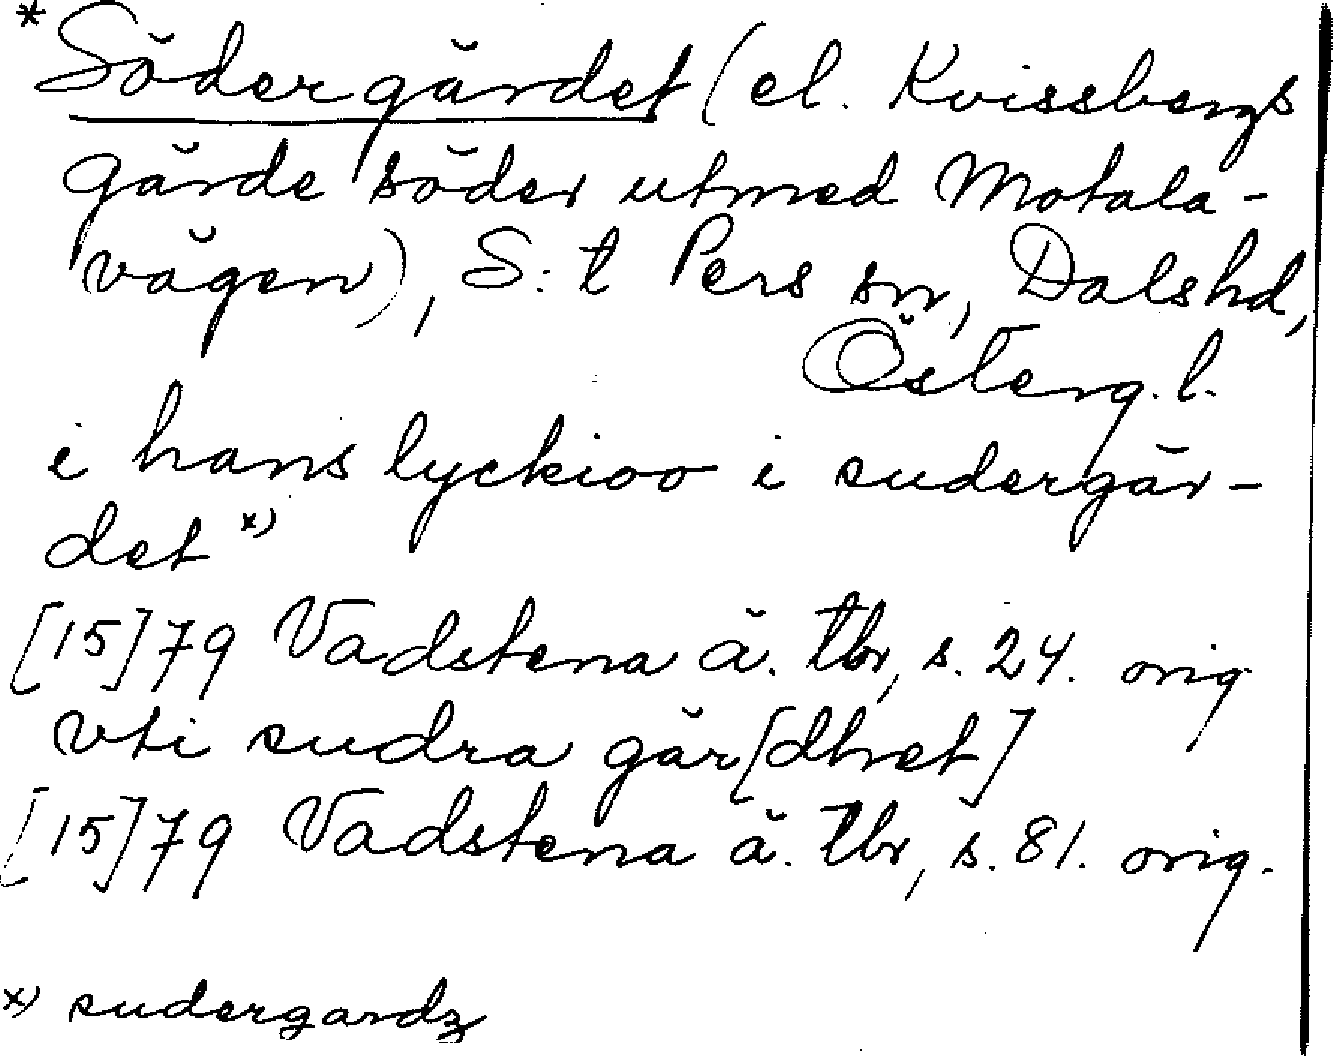 * Södergärdet (el. Kvissbergs
gärde söder utmed Motala-
vägen), S:t Pers sn, Dalshd,
Österg.l.
i hans lyckioo i sudergär-
det x)
[15]79 Vadstena ä. tbr, s. 24. orig
vti sudra gär[dhet]
[15]79 Vadstena ä. tbr, s. 81. orig.
x) sudergardz